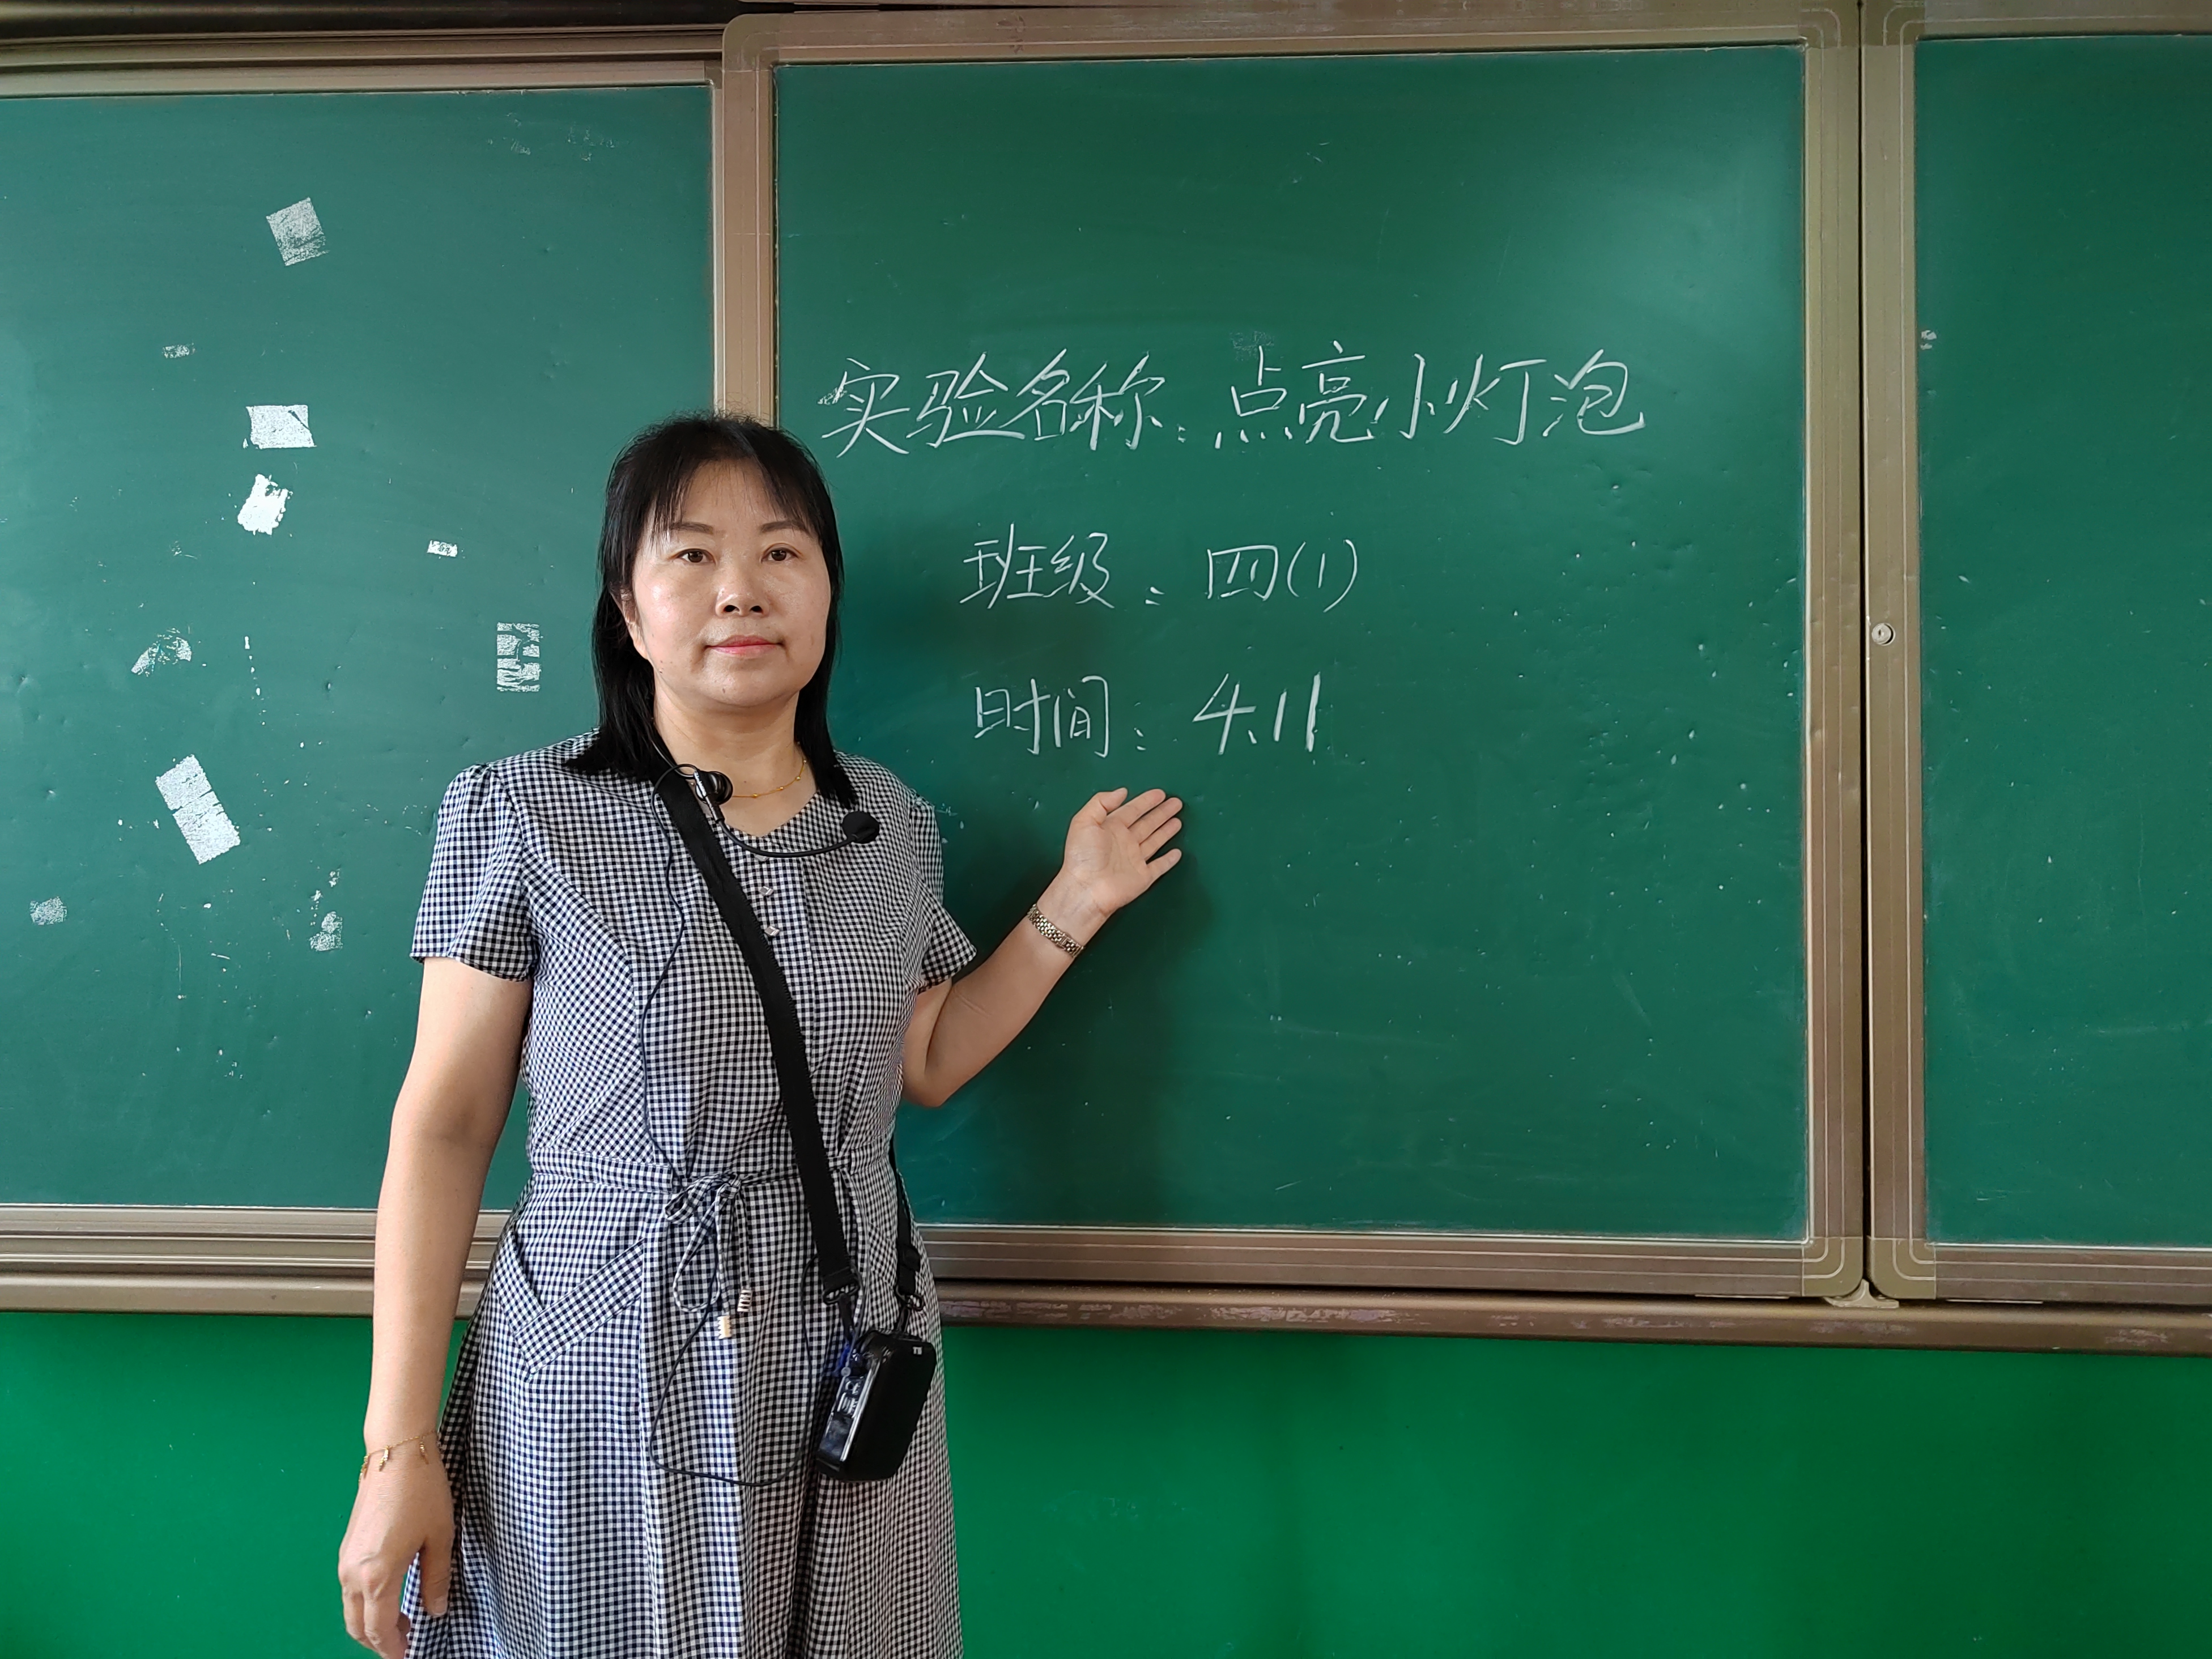 实验名称：点亮小灯泡
班级：四(1)
时间：4.11